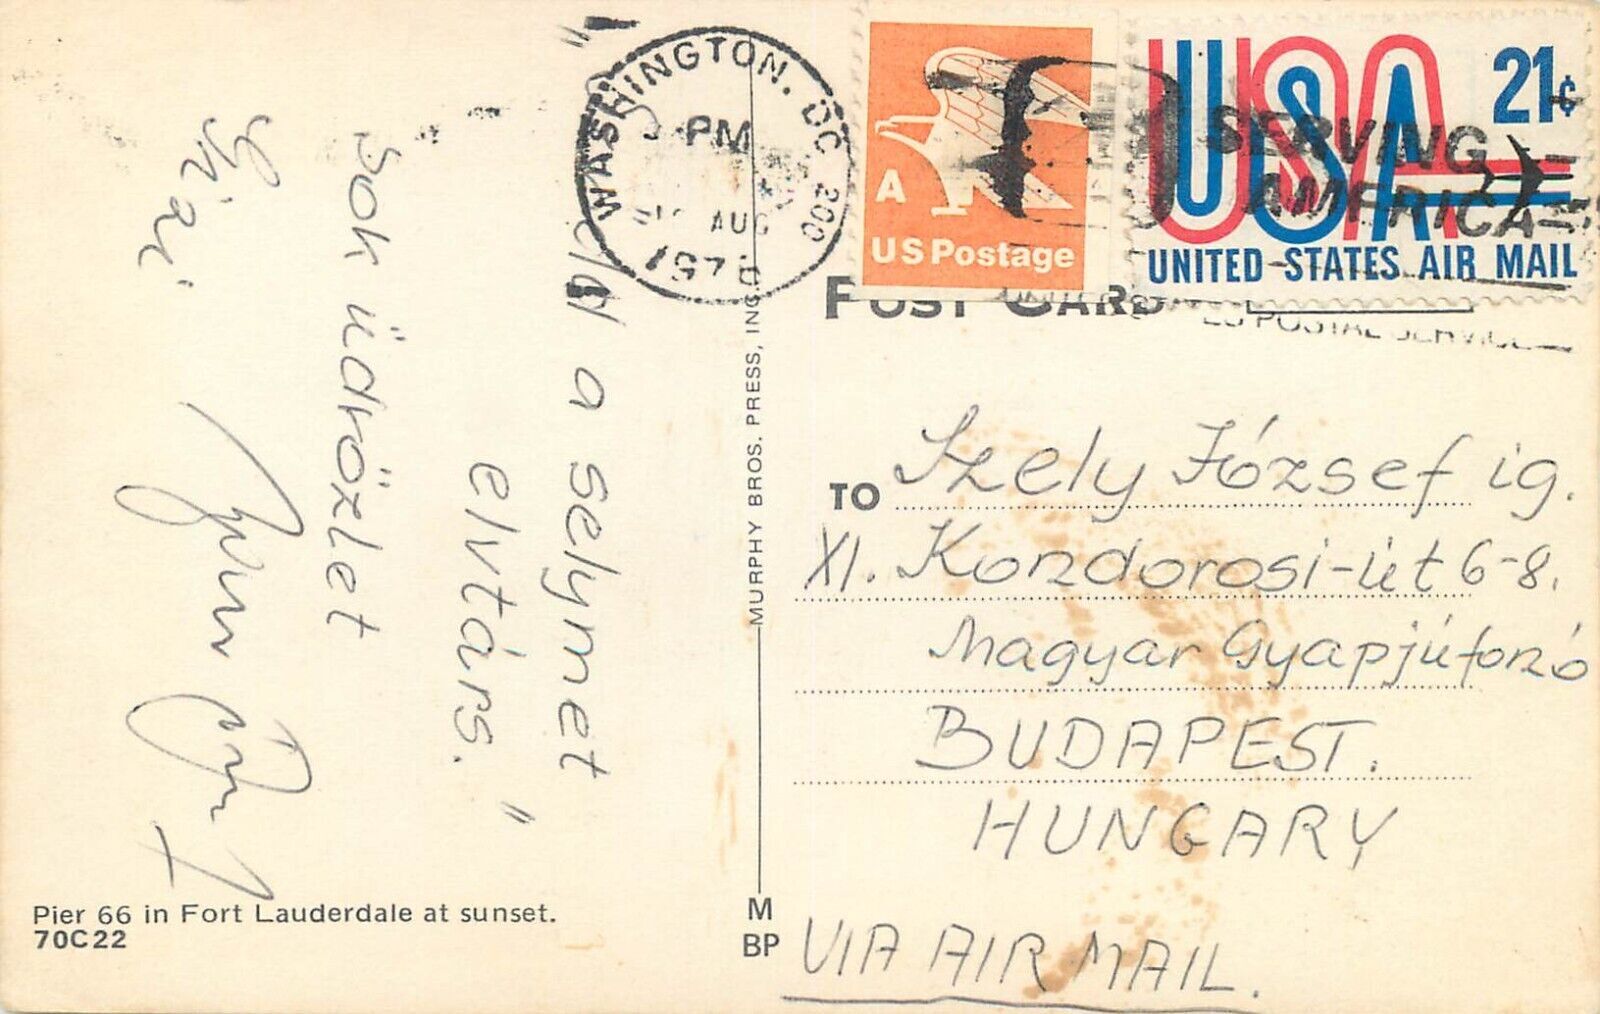 „Van a selymet
elvtárs."
Sok üdvözlet
WASHINGTON, DC 200
PM
AUG
197
A
US Postage
USA 21¢
UNITED STATES AIR MAIL
SERVING
AMERICA
POST CARD
POSTAL SERVICE
TO Szely József ig.
XI. Kondorosi-út 6-8.
Magyar Gyapjúfonó
BUDAPEST.
HUNGARY
VIA AIR MAIL.
MURPHY BROS. PRESS, INC.
M
BP
Pier 66 in Fort Lauderdale at sunset.
70C22